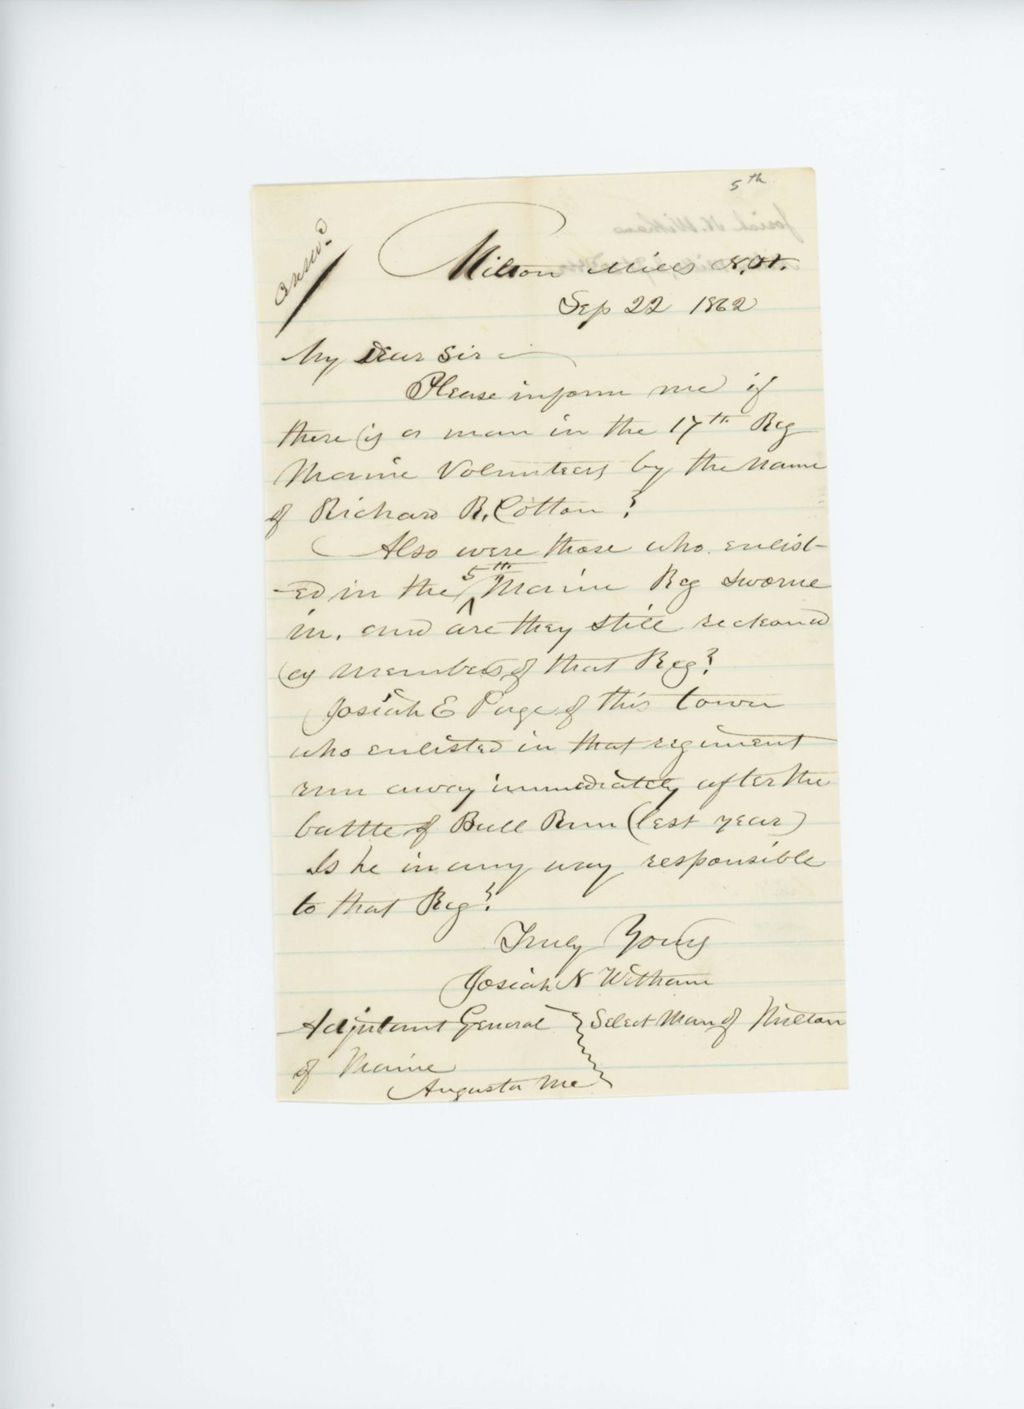 5th
answd
Milton Mills N.H.
Sep 22 1862
My Dear Sir
Please inform me if
there is a man in the 17th Reg
Maine Volunteers by the name
of Richard R. Cotton?
Also were those who enlist-
-ed in the 5th Maine Reg sworne
in, and are they still reckond
as members of that Reg?
Josiah E Page of this town
who enlisted in that regiment
run away immediately after the
battle of Bull Run (last year)
Is he in any way responsible
to that Reg?
Truly Yours
Josiah N Witham
Adjutant General } Select Man of Milton
of Maine
Augusta Me